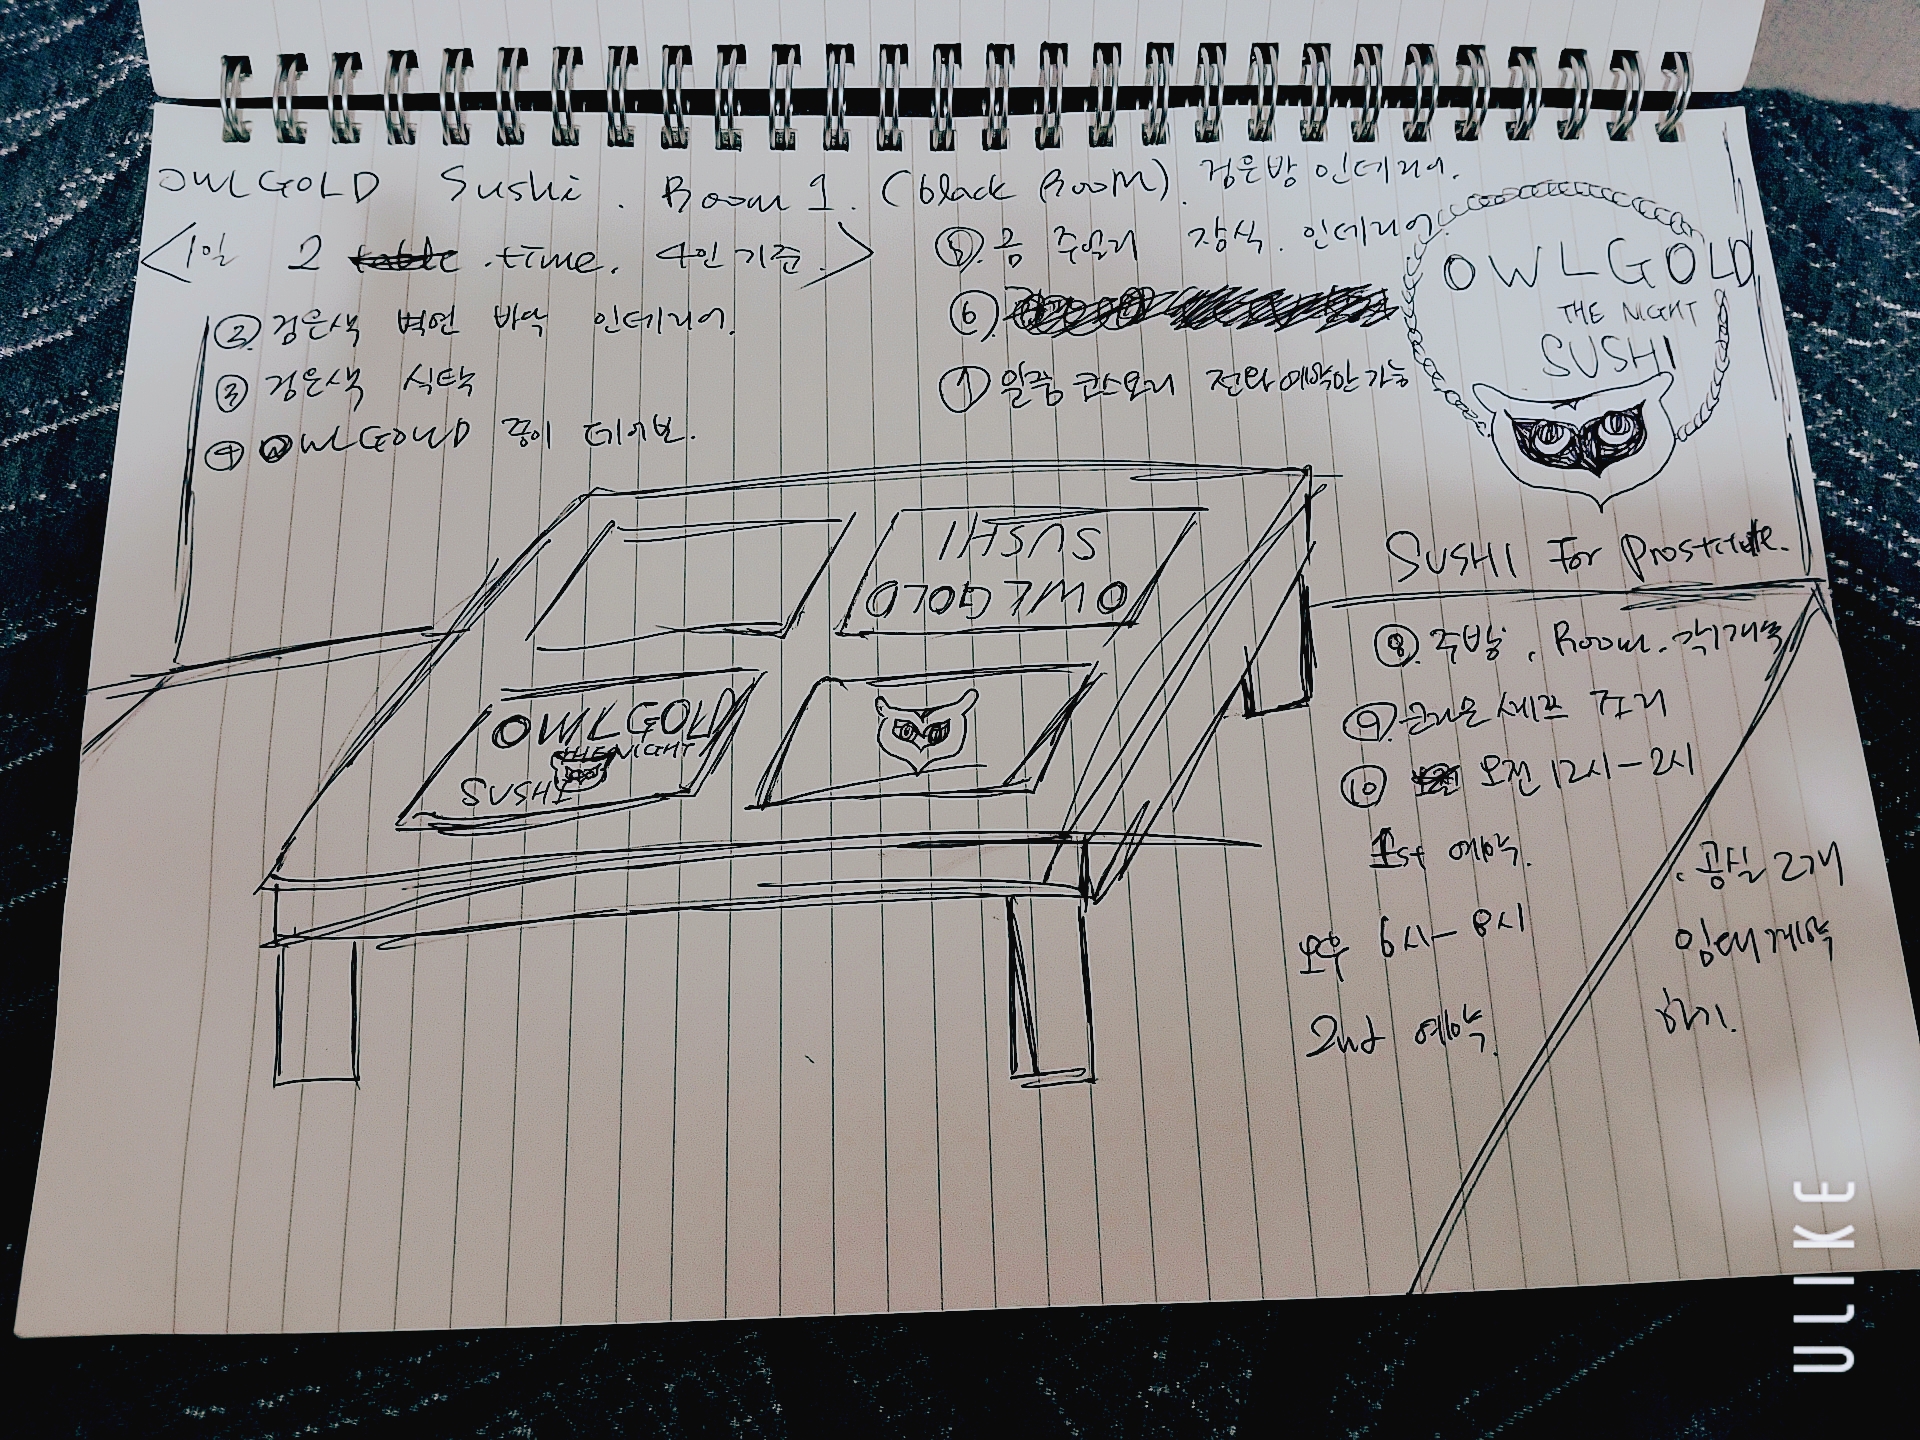 OWLGOLD Sushi. Room 1. (black Room). 검은방 인테리어.
<1일 2 time. 4인 기준.>
② 검은색 벽면 바닥 인테리어.
③ 검은색 식탁
④ OWLGOLD 종이 테이블.
⑤. 금 주얼리 장식. 인테리어.
⑥.
① 일품 코스요리 전화예약만가능
OWLGOLD
THE NIGHT
SUSHI
SUSHI For Prostitute.
SUSHI
OWLGOLD
OWLGOLD
THE NIGHT.
SUSHI
⑧. 주방, Room. 각1개씩
⑨. 쉐프
⑩ 오전 12시-2시
1st 예약.
오후 6시-8시
2nd 예약.
. 공실 2개
임대계약
하기.
ULIKE